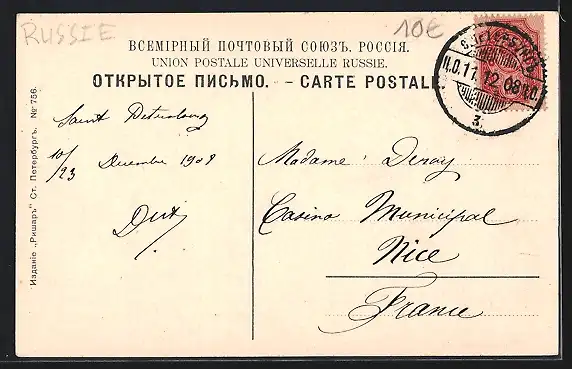 RUSSIE
10€
ВСЕМІРНЫЙ ПОЧТОВЫЙ СОЮЗЪ. РОССІЯ.
UNION POSTALE UNIVERSELLE RUSSIE.
ОТКРЫТОЕ ПИСЬМО. – CARTE POSTALE
11.12.08
3.
Saint Petersbourg
10/23 Decembre 1908
Madame Denoy
Casino Municipal
Nice
France
Изданіе „Ришаръ" Ст. Петербургъ. № 756.